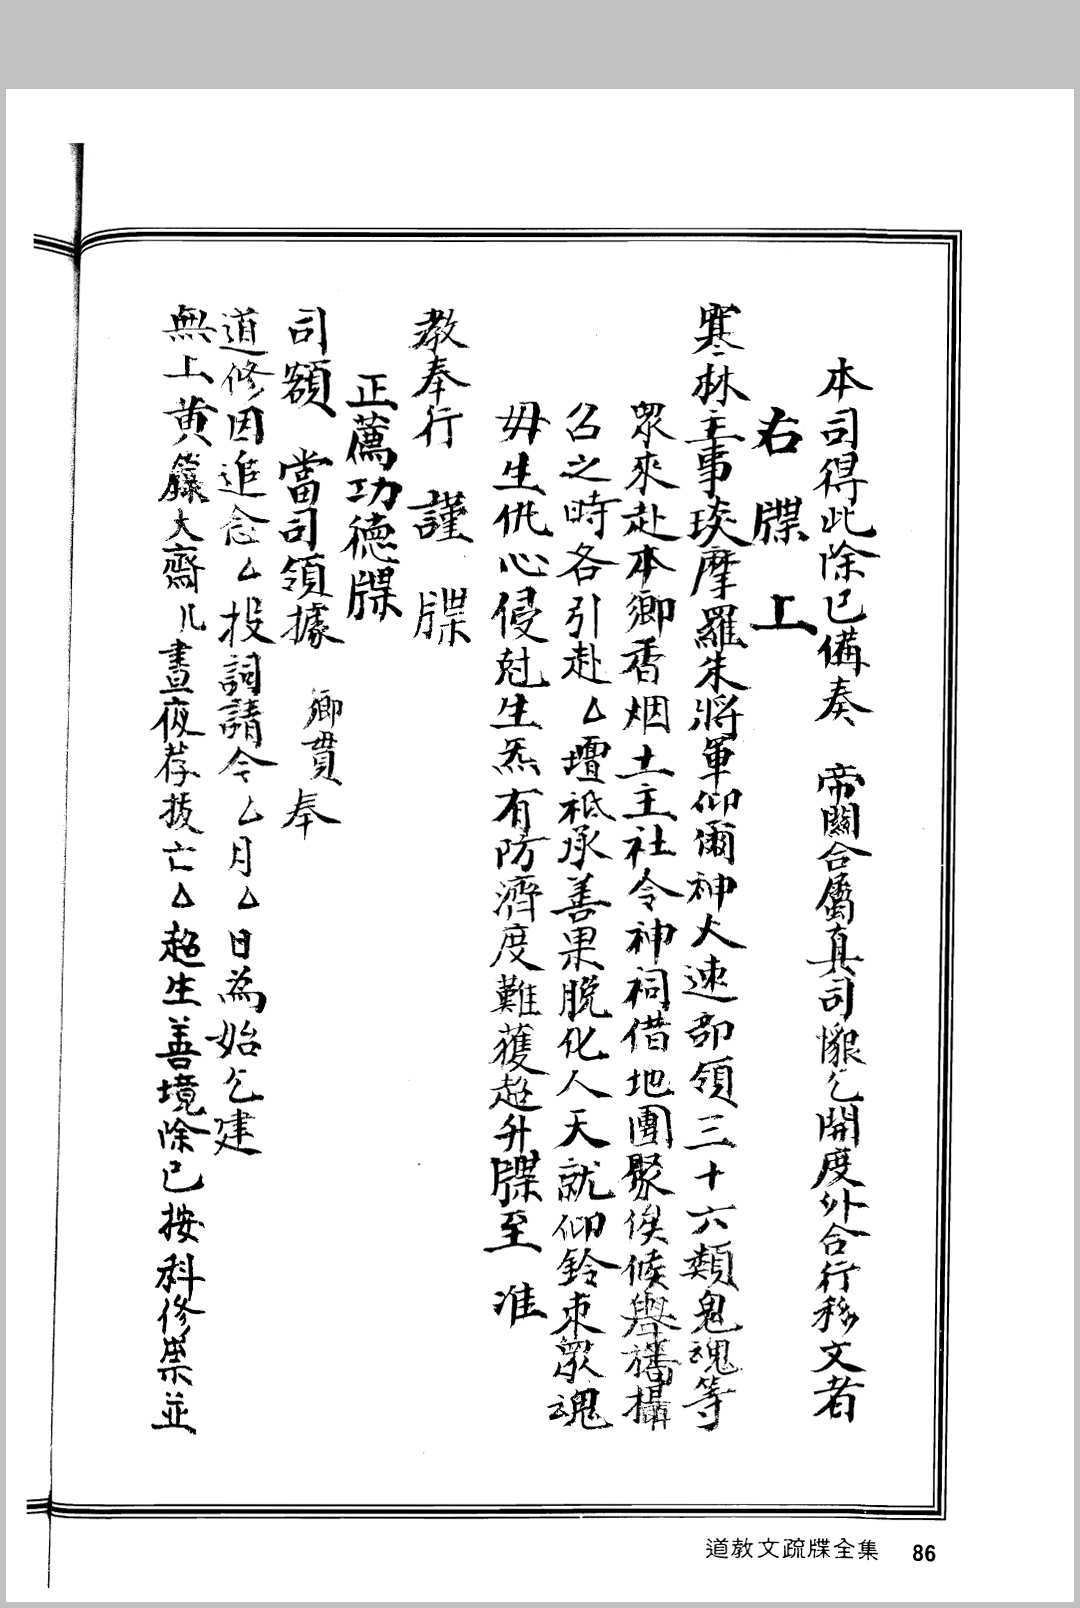 本司得此除已備奏　帝闕合屬真司懇乞開度外合行移文者
右　牒　上
寒林主事琰摩羅朱將軍仰爾神火速部領三十六類鬼魂等
眾來赴本鄉香烟土主社令神祠借地團聚俟候舉旛攝
召之時各引赴△壇祗承善果脫化人天就仰鈐束眾魂
毋生仇心侵尅生炁有防濟度難獲超升牒至　准
教奉行　謹　牒
正薦功德牒
司額　當司領據　鄉貫奉
道修因追念△投詞請今△月△日為始乞建
無上黃籙大齋几晝夜荐拔亡△超生善境除已按科修崇並
道教文疏牒全集　86